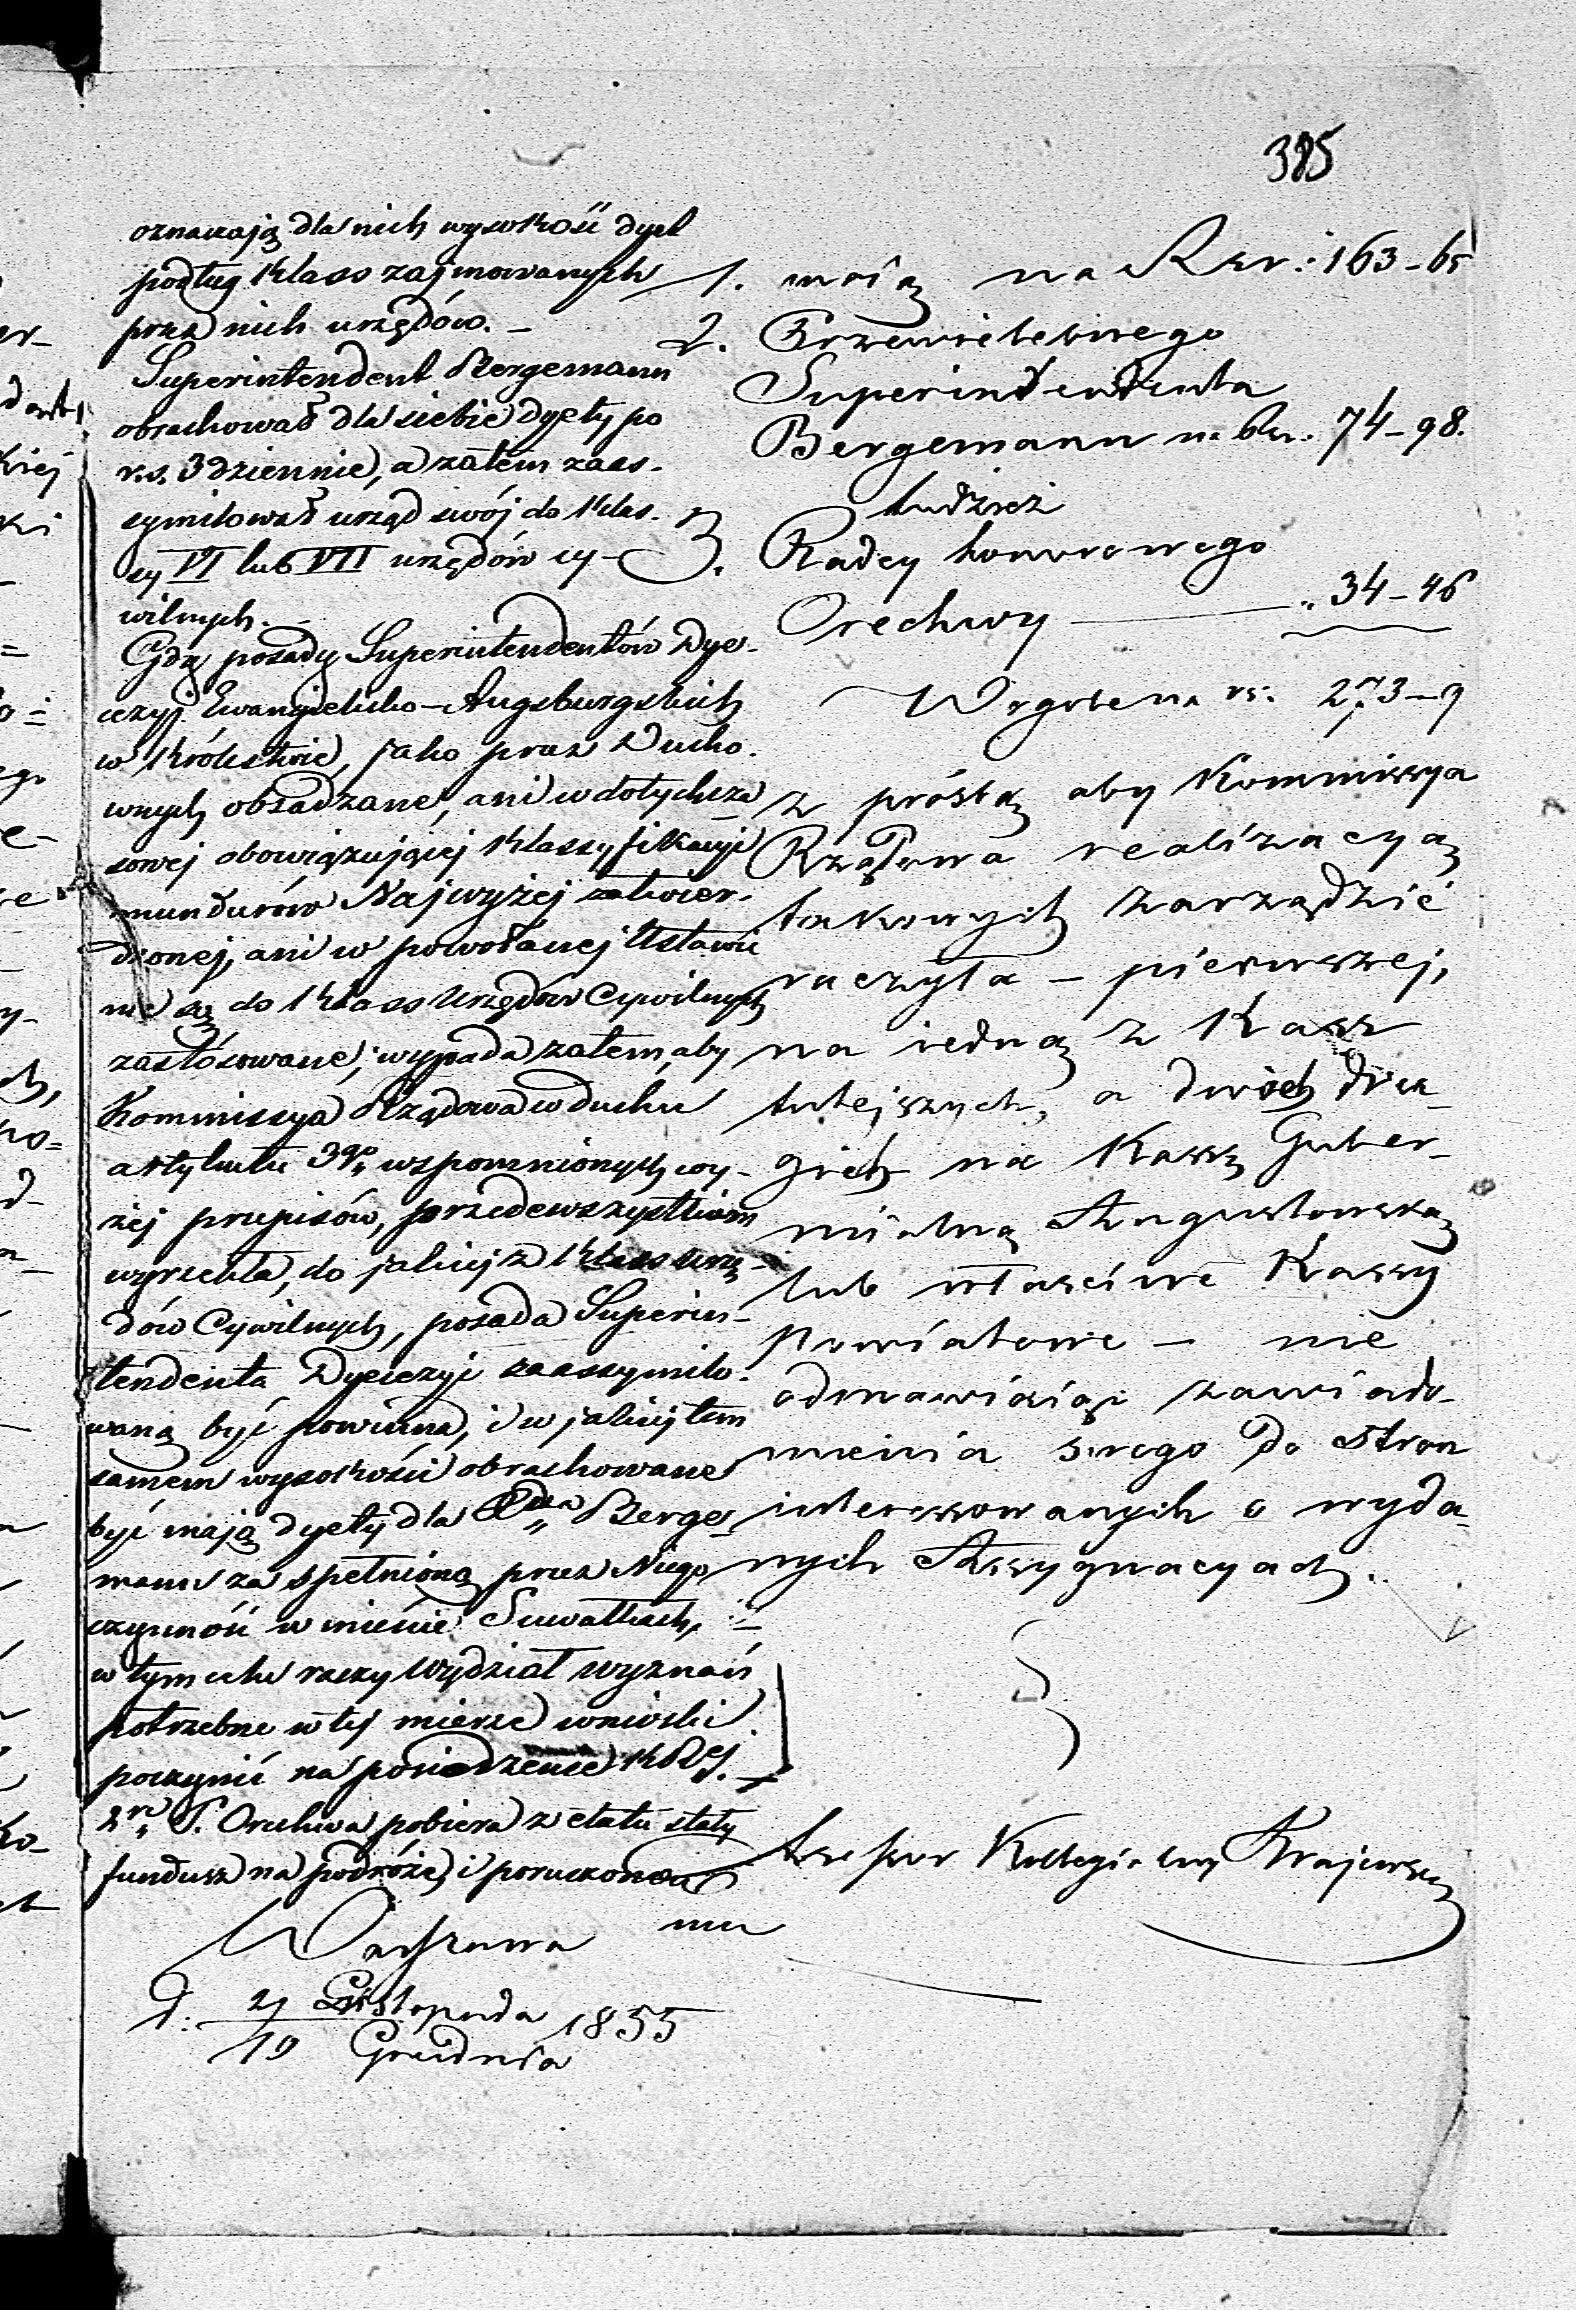 385
oznaczają dla nich wysokość dyet
podług klass zajmowanych
przez nich urzędów. –
Superintendent Bergemann
obrachował dla siebie dyety po
r.s. 3 dziennie, a zatem zaas-
symilował urząd swój do klas-
sy VI lub VII urzędów cy-
wilnych. –
Gdy posady Superintendentów Dye-
cezyj Ewangielicko-Augsburgskich
w Królestwie, jako przez Ducho-
wnych obsadzane, ani w dotychcza-
sowej obowiązującej klassyfikacyi
mundurów Najwyżej zatwier-
dzonej, ani w powołanej Ustawie
nie są do klass Urzędów Cywilnych
zastósowane, wypada zatem, aby
Kommissya Rządowa w duchu
artykułu 3go wspomnionych wy-
żej przepisów, przedewszystkiem
wyrzekła, do jakiej z klass urzę-
dów Cywilnych, posada Superin-
tendenta Dyecezyi zaassymilo-
waną być powinna, i w jakiej tem
samem wysokości obrachowane
być mają dyety dla Berge-
mann za spełnioną przez Niego
czynność w mieście Suwałkach, –
w tym celu raczy Wydział Wyznań
potrzebne w tej mierze wnioski
poczynić na posiedzenie KRej. –
2re P. Orechwa pobiera z etatu stały
fundusz na podróże, i poruczone
mu
Warszawa
d. 21 Listopada
19 Grudnia 1855
1. mość na Rsr: 163-65
2. Przewielebnego
Superintendenta
Bergemann na Rsr. 74-98.
tudzież
3. Radcy honorowego
Orechwy — " 34-46
W ogóle na rs. 273-9
z prośbą aby Kommissya
Rządowa realizacyą
takowych zarządzić
raczyła – pierwszej,
na jedną z Kass
tutejszych, a dwóch dru-
gich na Kassę Guber-
nialną Augustowską
lub właściwe Kassy
Powiatowe – nie
odmawiając zawiado-
mienia swego do stron
interessowanych o wyda-
nych Assygnacyach.
Assessor Kollegialny Krajewski